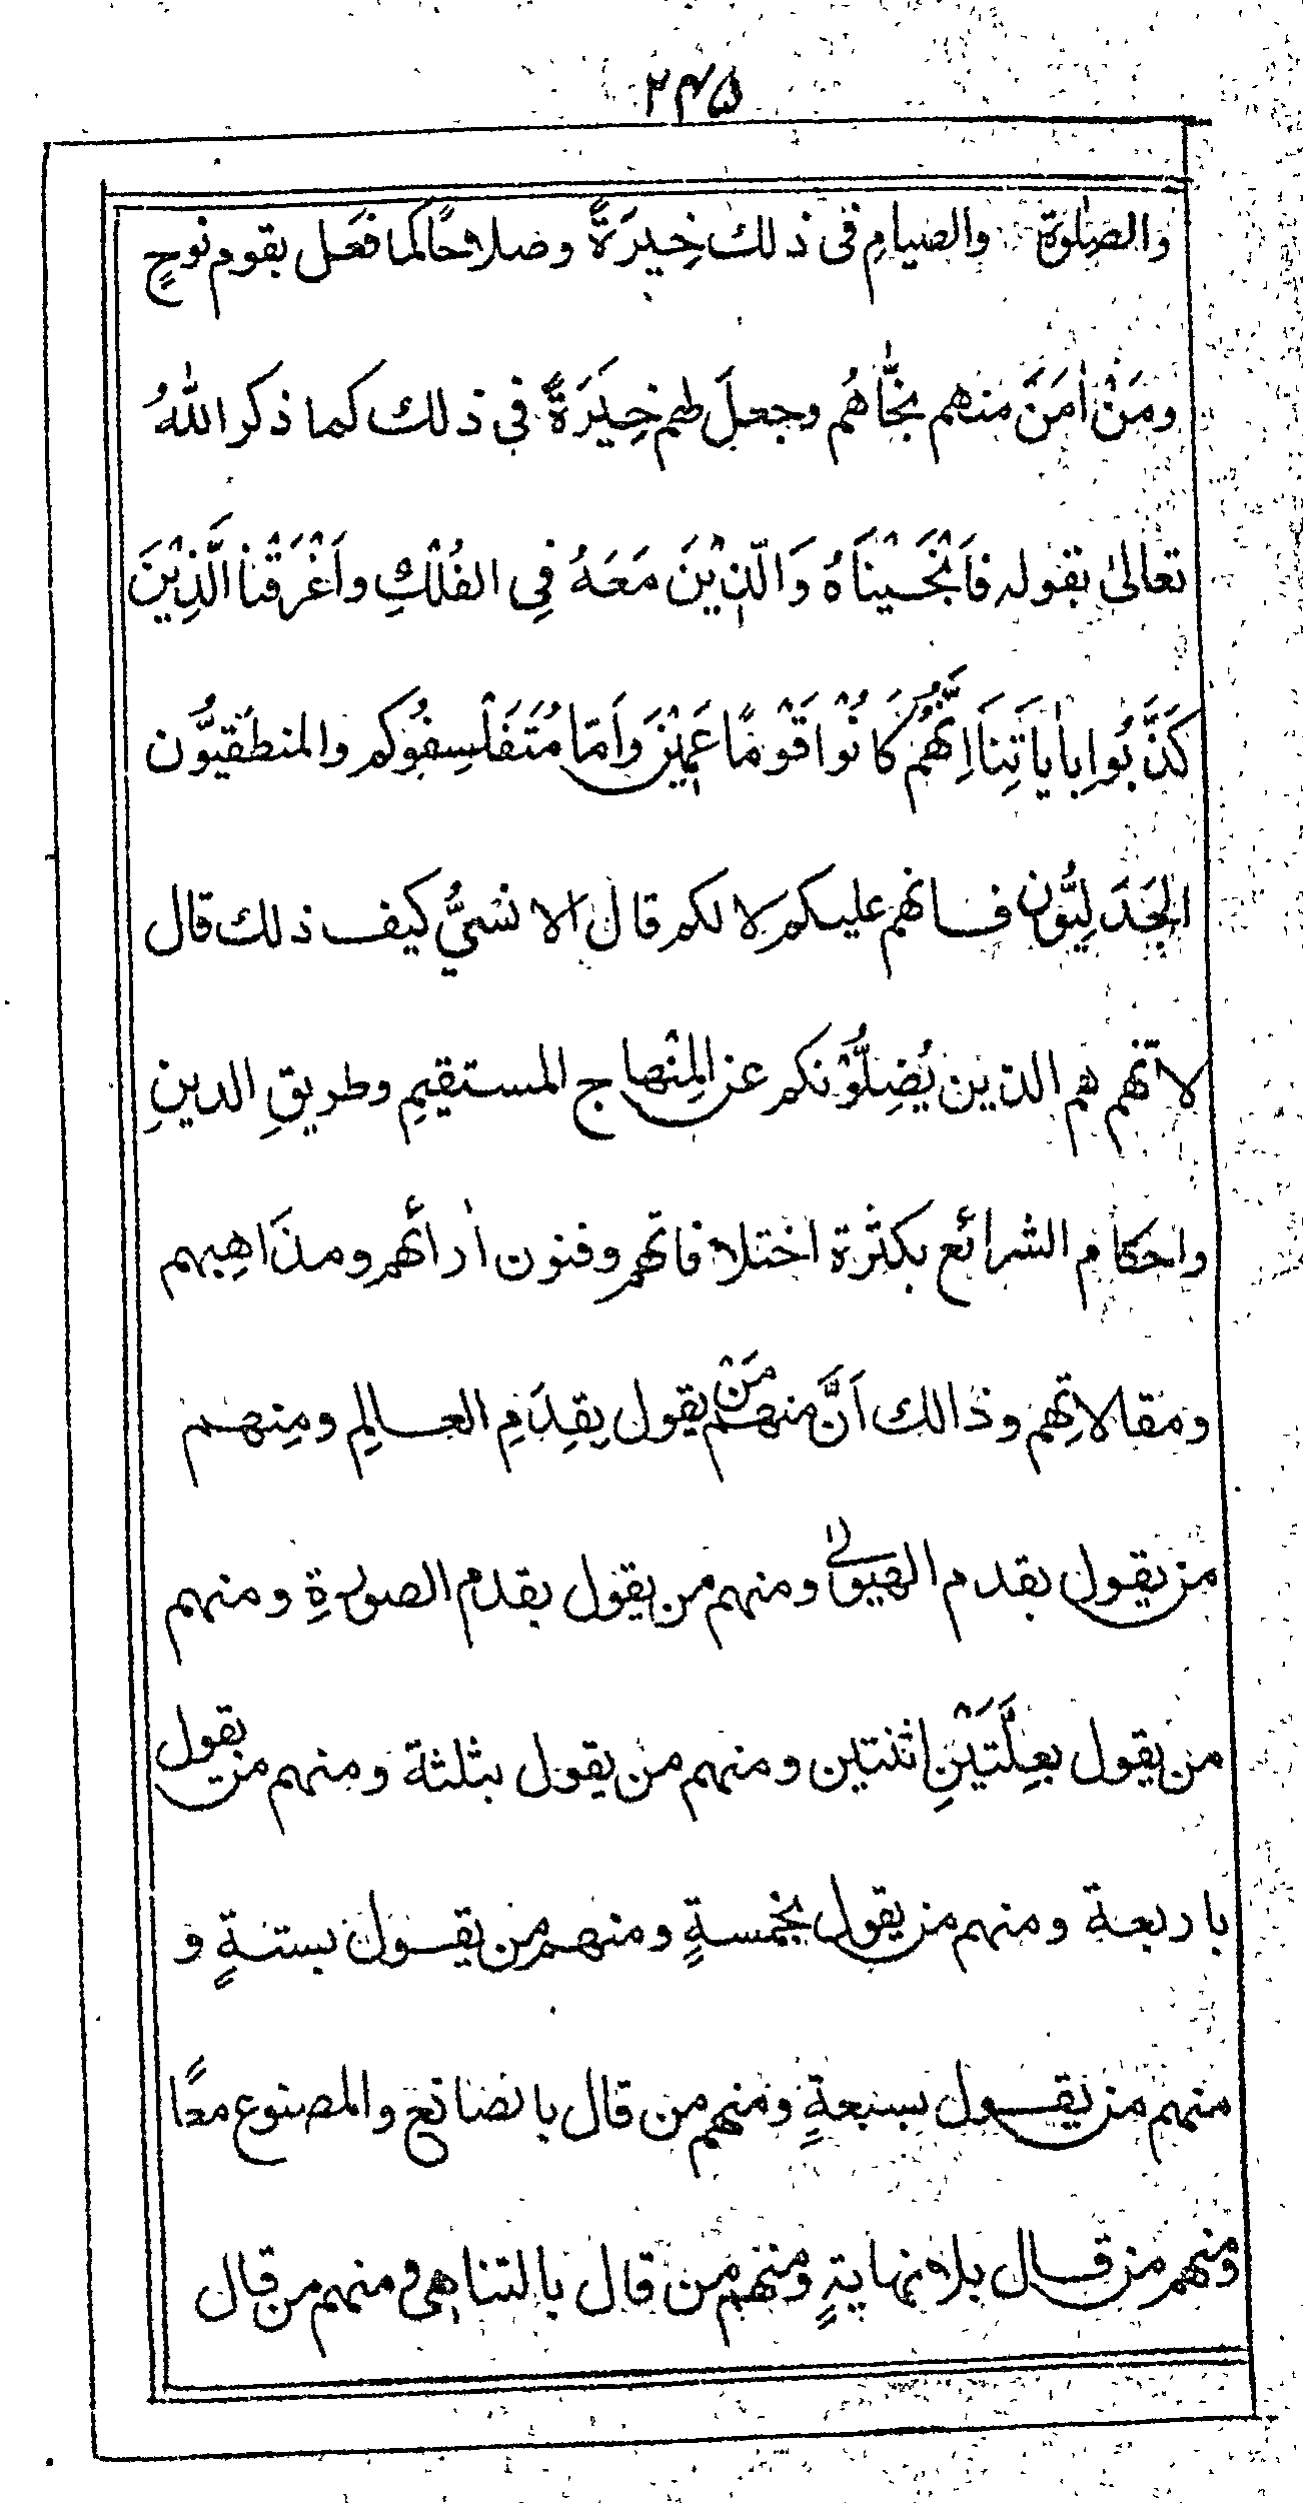 ۲۴۵
والصلوة والصيامِ فی ذلك خِيرَةً وصلاحًا كما فعَل بقوم نوحٍ
ومَنْ اٰمَنَ منهم نجّاهُم وجعلَ لهم خِيَرَةً فی ذلك كما ذكر اللهُ
تعالىٰ بقوله فَاَنْجَيْنَاهُ وَالَّذِيْنَ مَعَهُ فِی الفُلْكِ واَغْرَقْنا الَّذِيْنَ
كَذَّبُوا بِاٰيَاتِنَا اِنَّهُمْ كَانُوْا قَوْمًا عَمِيْنَ وَاَمّا مُتَفَلْسِفُوكم والمنطَقيُّون
الجَدَلِيُّون فانهم عليكم لا لكم قال الانسیُّ كيف ذلك قال
لانّهم هم الذين يُضِلُّوْنكم عن المِنْهاج المستقيمِ وطريقِ الدينِ
واحكام الشرائع بكثرة اختلافاتهم وفنون اٰرائهم ومذَاهِبهم
ومقالاتِهم وذالك اَنَّ منهم مَنْ يقول بِقِدَمِ العالمِ ومِنهم
من يقول بقدم الهيولٰى ومنهم من يقول بقدم الصورةِ ومنهم
من يقول بعِلَّتَيْنِ اثنتين ومنهم من يقول بثلثة ومنهم من يقول
باربعة ومنهم من يقول بخمسةٍ ومنهم من يقول بستةٍ و
منهم من يقول بسبعةٍ ومنهم من قال بالصانع والمصنوع معًا
ومنهم من قال بلانهايةٍ ومنهم من قال بالتناهی ومنهم من قال